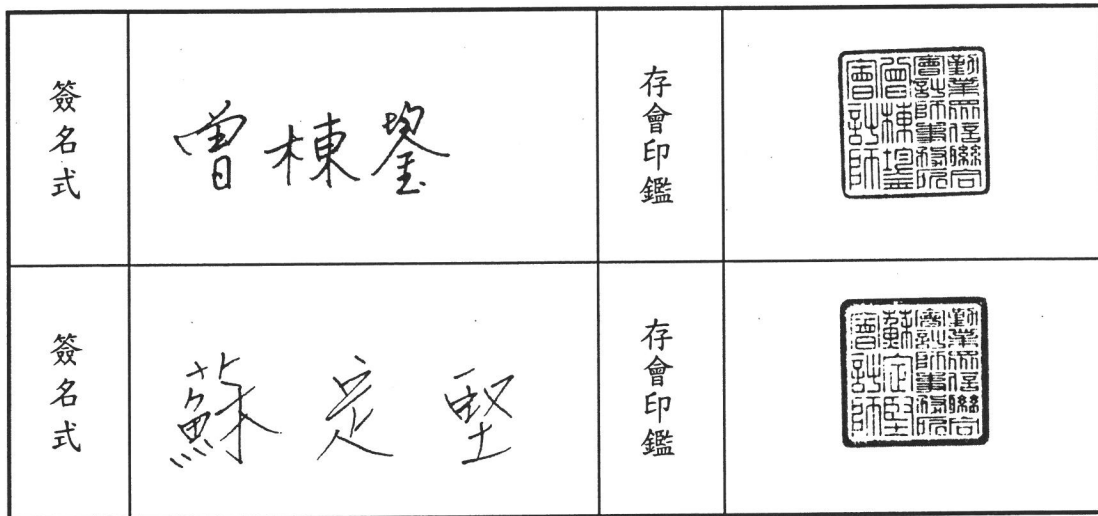 簽名式
曾棟鋆
存會印鑑
勤業眾信聯合
會計師事務所
曾棟鋆
會計師
簽名式
蘇定堅
存會印鑑
勤業眾信聯合
會計師事務所
蘇定堅
會計師